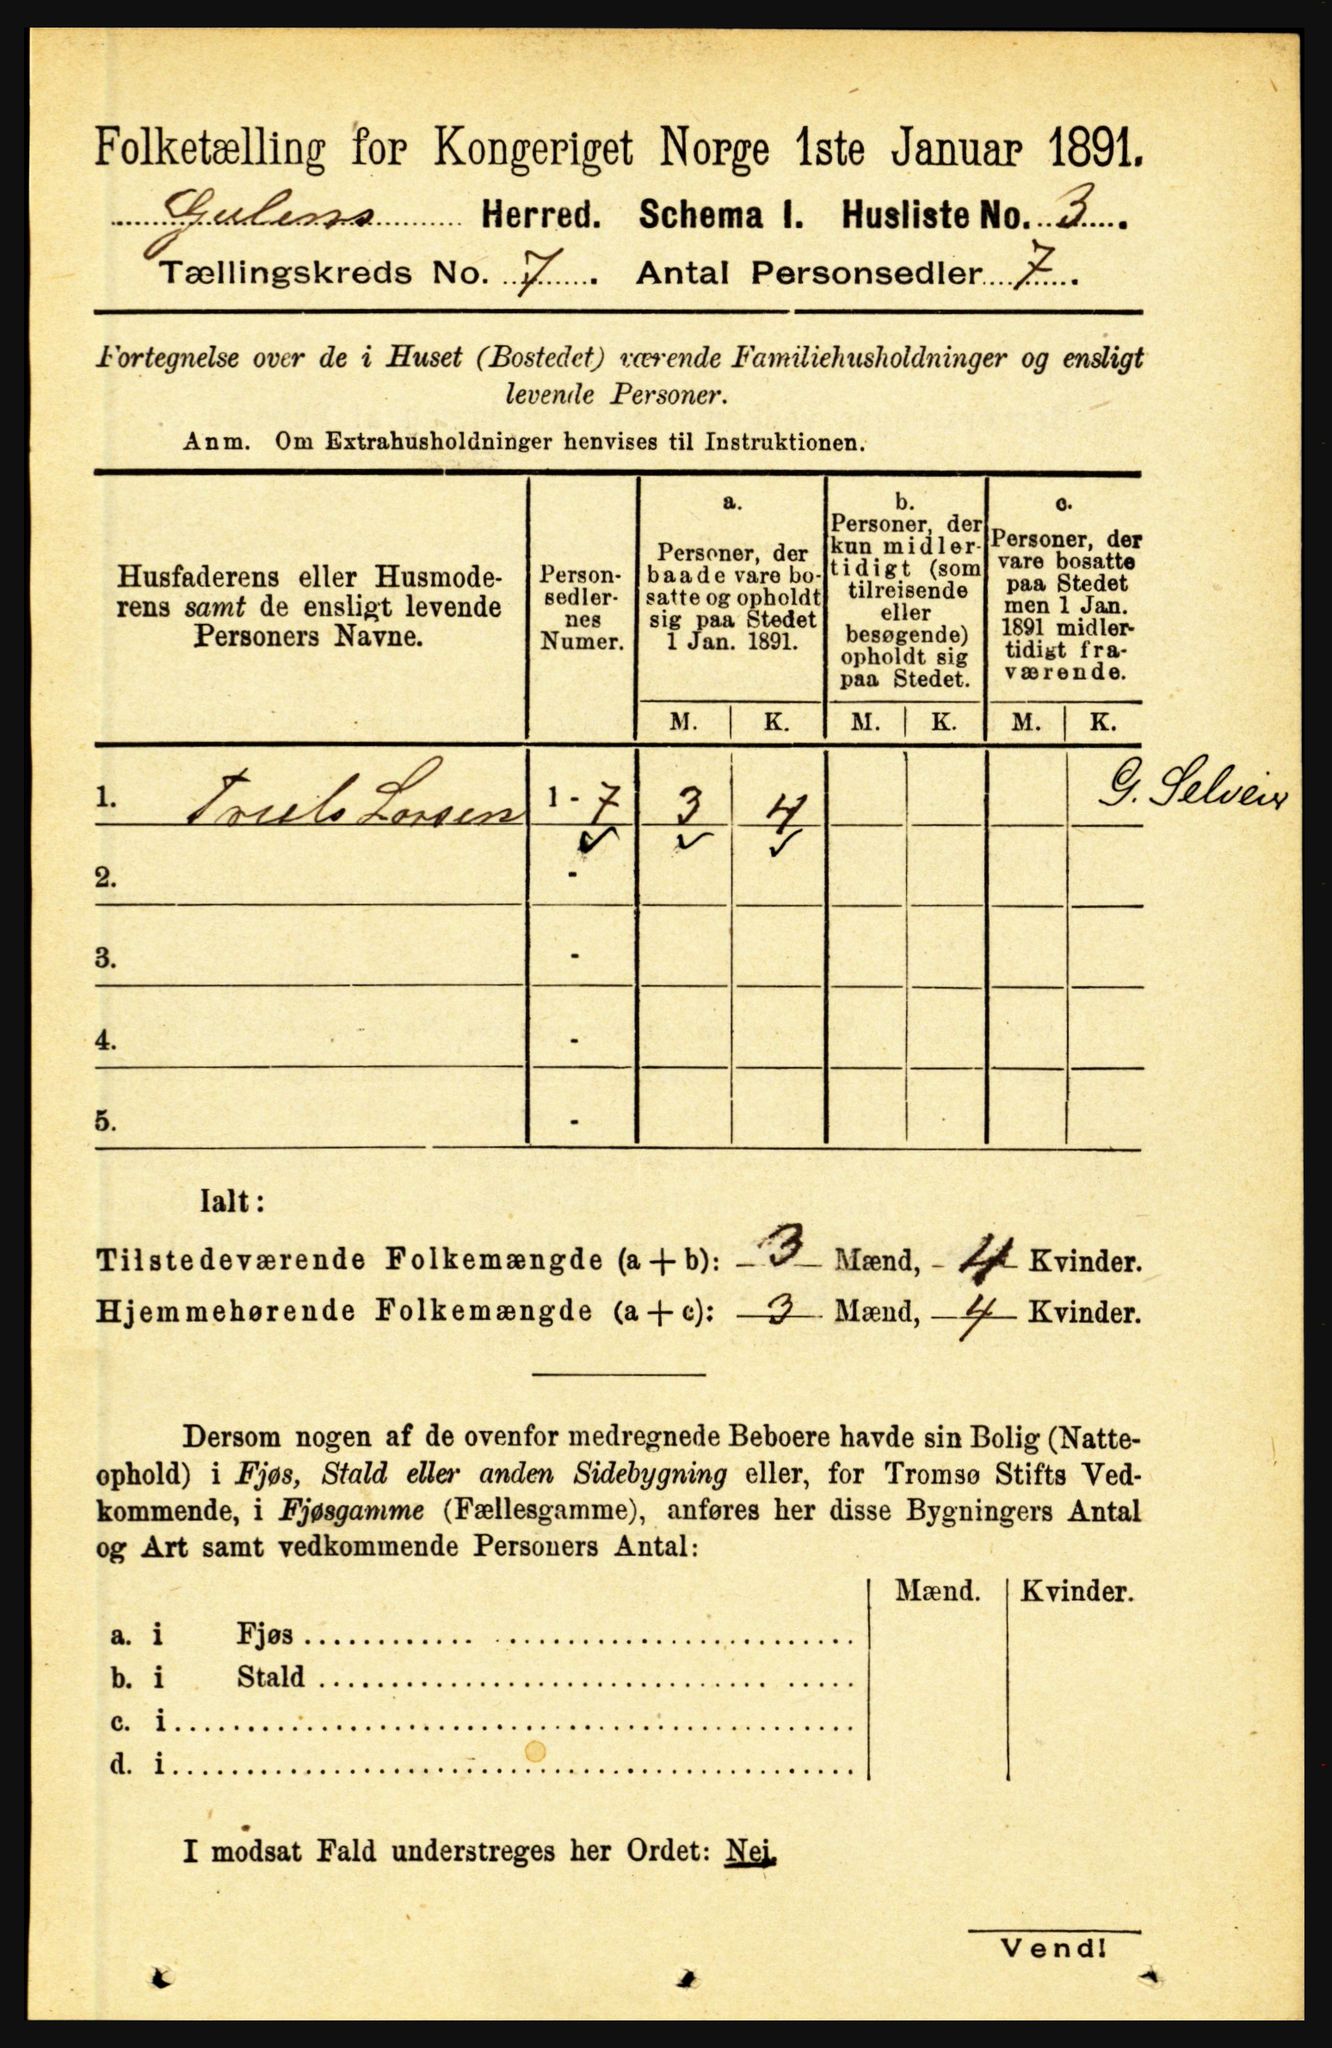 Folketælling for Kongeriget Norge 1ste Januar 1891.
Gulens Herred. Schema I. Husliste No. 3.
Tællingskreds No. 7. Antal Personsedler 7.
Fortegnelse over de i Huset (Bostedet) værende Familiehusholdninger og ensligt
levende Personer.
Anm. Om Extrahusholdninger henvises til Instruktionen.
Husfaderens eller Husmode-
rens samt de ensligt levende
Personers Navne.
Person-
sedler-
nes
Numer.
a.
Personer, der
baade vare bo-
satte og opholdt
sig paa Stedet
1 Jan. 1891.
b.
Personer, der
kun midler-
tidigt (som
tilreisende
eller
besøgende)
opholdt sig
paa Stedet.
c.
Personer, der
vare bosatte
paa Stedet
men 1 Jan.
1891 midler-
tidigt fra-
værende.
M. K. M. K. M. K.
1. Truels Larsen 1 - 7 3 4 G. Selvein
2. -
3. -
4. -
5. -
Ialt:
Tilstedeværende Folkemængde (a + b): 3 Mænd, 4 Kvinder.
Hjemmehørende Folkemængde (a + c): 3 Mænd, 4 Kvinder.
Dersom nogen af de ovenfor medregnede Beboere havde sin Bolig (Natte-
ophold) i Fjøs, Stald eller anden Sidebygning eller, for Tromsø Stifts Ved-
kommende, i Fjøsgamme (Fællesgamme), anføres her disse Bygningers Antal
og Art samt vedkommende Personers Antal:
Mænd. Kvinder.
a. i Fjøs
b. i Stald
c. i
d. i
I modsat Fald understreges her Ordet: Nei.
Vend!